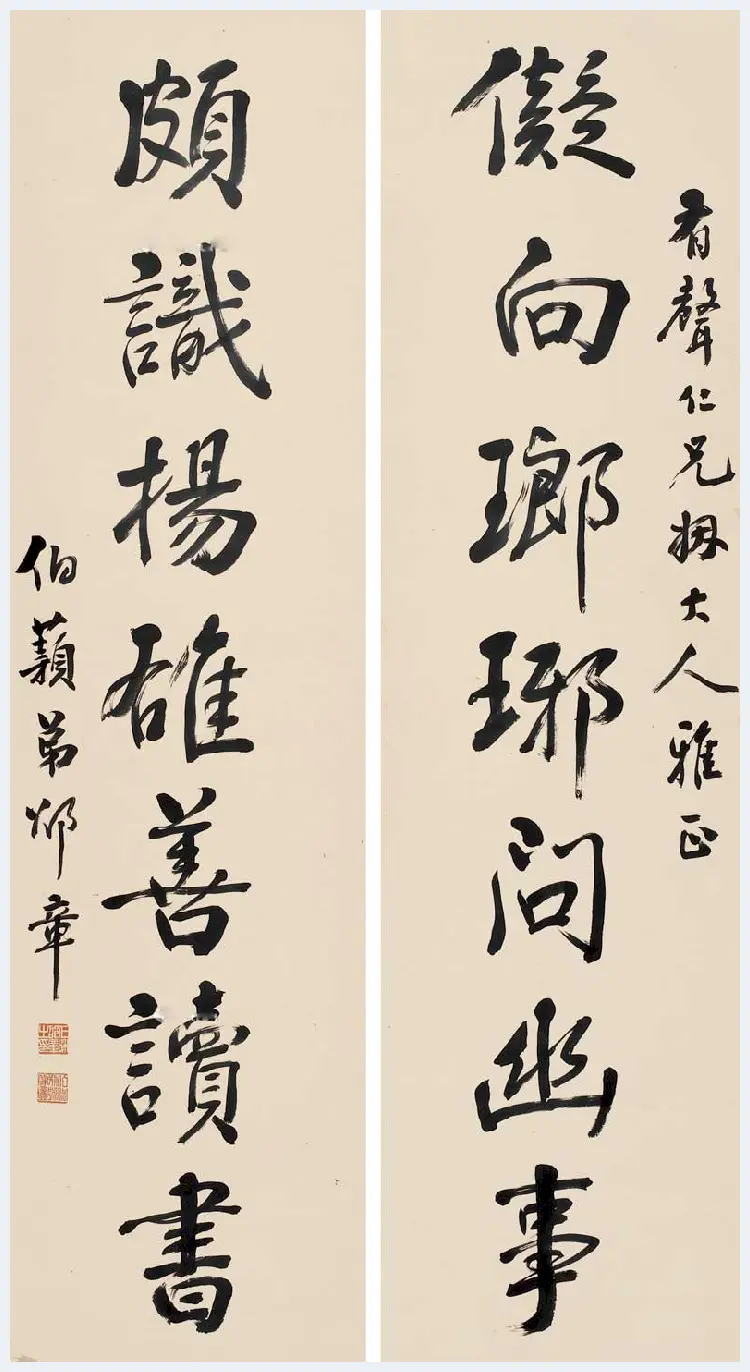 有聲仁兄姻大人雅正
儗向瑯琊問幽事
頗識揚雄善讀書
伯弟邵章